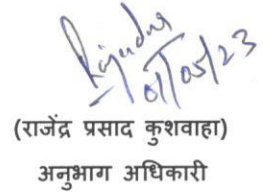 Rajendra
01/05/23
(राजेंद्र प्रसाद कुशवाहा)
अनुभाग अधिकारी